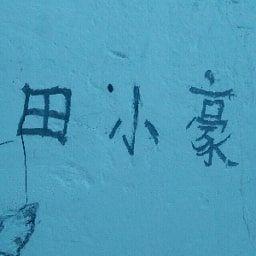 田小豪